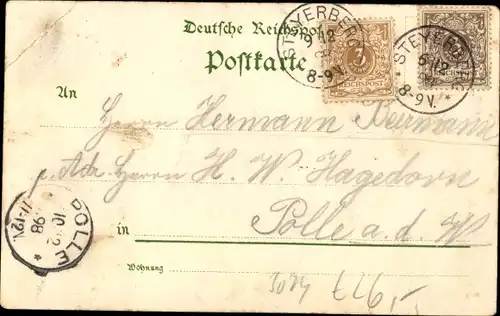 Deutsche Reichspost
Postkarte
STEYERBERG
9/12
8-9V.
3
REICHSPOST
STEYERBERG
8-9V.
REICHSPOST
An
Herrn Hermann Beermann
p. Adr. Herrn H. W. Hagedorn
POLLE
10/12
98
11-12V.
in
Polle a. d. W
Wohnung